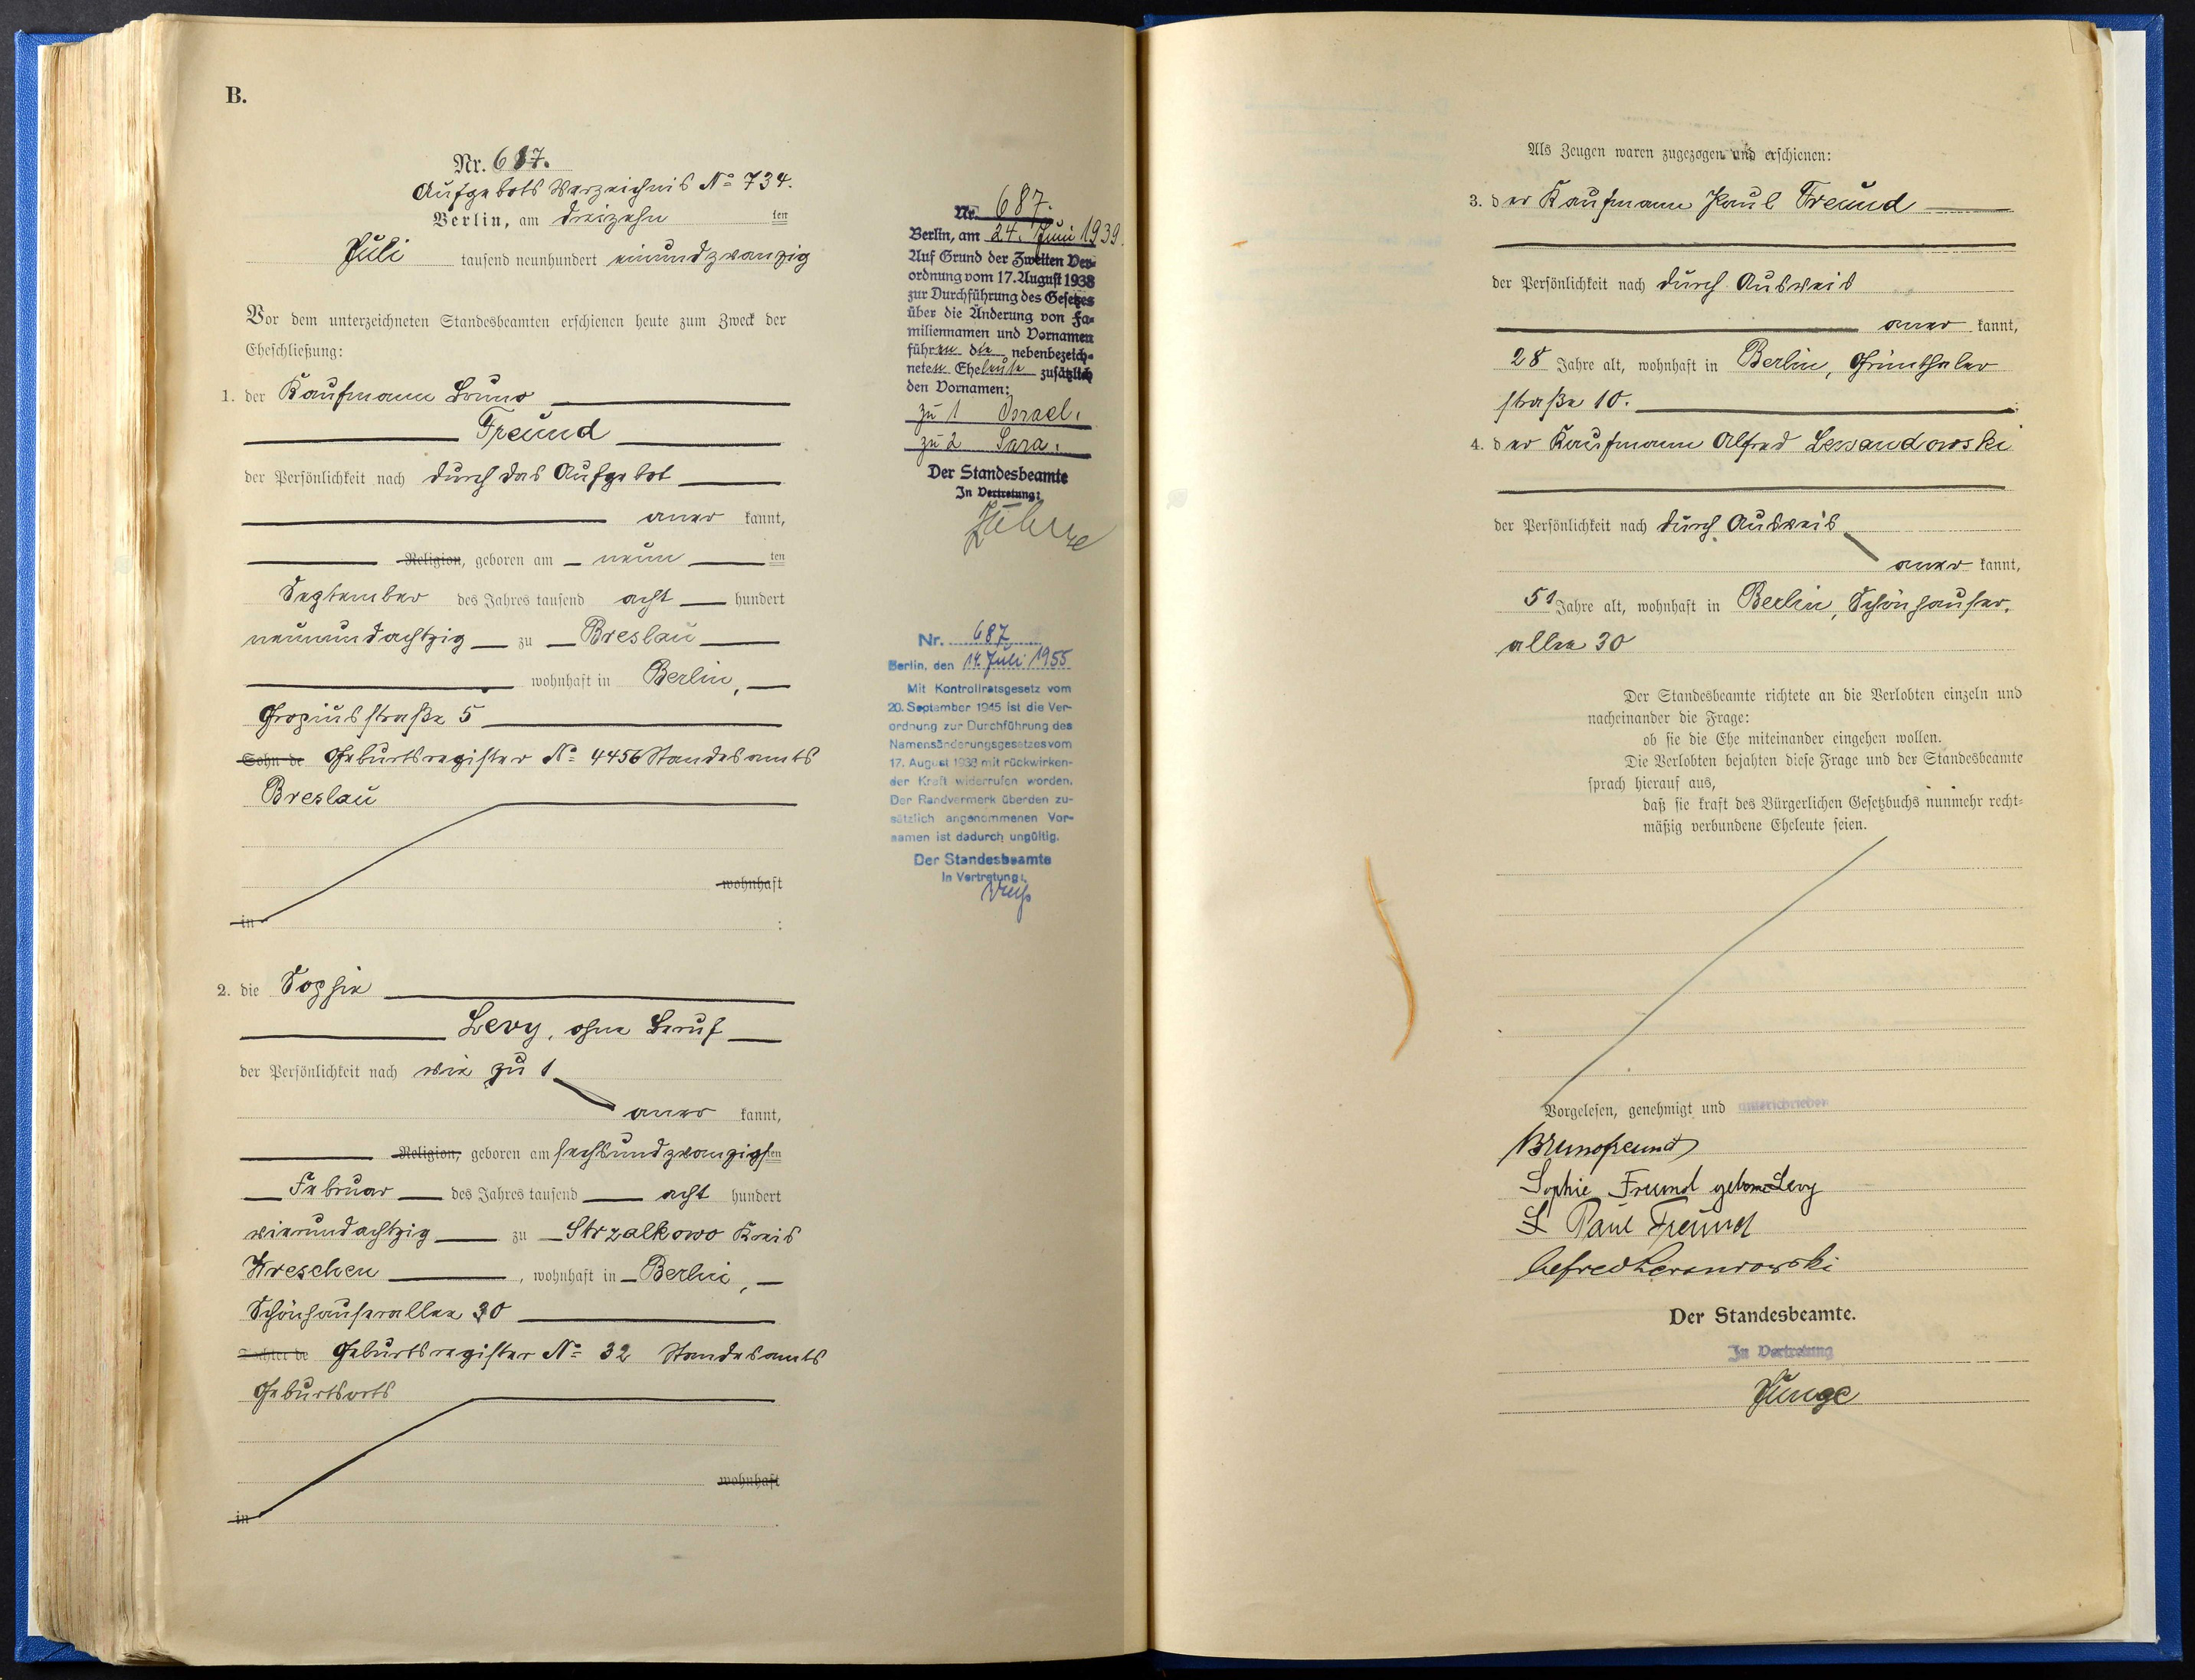 B.
Nr. 687.
Aufgebots Verzeichnis No 734.
Berlin, am dreizehn ten
Juli tausend neunhundert einundzwanzig
Vor dem unterzeichneten Standesbeamten erschienen heute zum Zweck der
Eheschließung:
1. der Kaufmann Bruno
Freund
der Persönlichkeit nach durch das Aufgebot
aner kannt,
Religion, geboren am neun ten
September des Jahres tausend acht hundert
neunundachtzig zu Breslau
wohnhaft in Berlin,
Gropiusstraße 5
Sohn de Geburtsregister No 4456 Standesamts
Breslau
wohnhaft
in :
2. die Sophie
Levy, ohne Beruf
der Persönlichkeit nach wie zu 1
aner kannt,
Religion, geboren am sechsundzwanzigsten
Februar des Jahres tausend acht hundert
vierundachtzig zu Strzalkowo Kreis
Wreschen, wohnhaft in Berlin,
Schönhauserallee 30
Tochter de Geburtsregister No 32 Standesamts
Geburtsorts
wohnhaft
in
Nr. 687.
Berlin, am 24. Juni 1939.
Auf Grund der Zweiten Ver=
ordnung vom 17. August 1938
zur Durchführung des Gesetzes
über die Änderung von Fa=
miliennamen und Vornamen
führen die nebenbezeich=
neten Eheleute zusätzlich
den Vornamen:
zu 1 Israel.
zu 2 Sara.
Der Standesbeamte
In Vertretung:
Nr. 687
Berlin, den 14. Juli 1955
Mit Kontrollratsgesetz vom
20. September 1945 ist die Ver-
ordnung zur Durchführung des
Namensänderungsgesetzes vom
17. August 1938 mit rückwirken-
der Kraft widerrufen worden.
Der Randvermerk über den zu-
sätzlich angenommenen Vor-
namen ist dadurch ungültig.
Der Standesbeamte
In Vertretung:
Als Zeugen waren zugezogen und erschienen:
3. der Kaufmann Paul Freund
der Persönlichkeit nach durch Ausweis
aner kannt,
28 Jahre alt, wohnhaft in Berlin, Grünthaler
straße 10. ;
4. der Kaufmann Alfred Lewandowski
der Persönlichkeit nach durch Ausweis
aner kannt,
51 Jahre alt, wohnhaft in Berlin, Schönhauser,
allee 30
Der Standesbeamte richtete an die Verlobten einzeln und
nacheinander die Frage:
ob sie die Ehe miteinander eingehen wollen.
Die Verlobten bejahten diese Frage und der Standesbeamte
sprach hierauf aus,
daß sie kraft des Bürgerlichen Gesetzbuchs nunmehr recht=
mäßig verbundene Eheleute seien.
Vorgelesen, genehmigt und unterschrieben
Bruno Freund
Sophie Freund geborne Levy
Paul Freund
Alfred Lewandowski
Der Standesbeamte.
In Vertretung
Junge